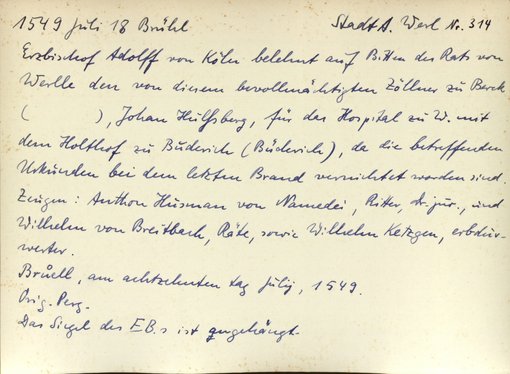 1549 Juli 18 Brühl StadtA. Werl Nr. 314
Erzbischof Adolff von Köln belehnt auf Bitten des Rats von
Werlle den von diesem bevollmächtigten Zöllner zu Berck
( ), Johan Hulsberg, für das Hospital zu W. mit
dem Holthof zu Buderich (Büderich), da die betreffenden
Urkunden bei dem letzten Brand vernichtet worden sind.
Zeugen: Anthon Husman von Namedei, Ritter, Dr. jur., und
Wilhelm von Breitbach, Räte, sowie Wilhelm Ketzgen, erbdür-
werter.
Brüell, am achtzehnten tag July, 1549.
Orig. Perg.
Das Siegel des EB.s ist angehängt.